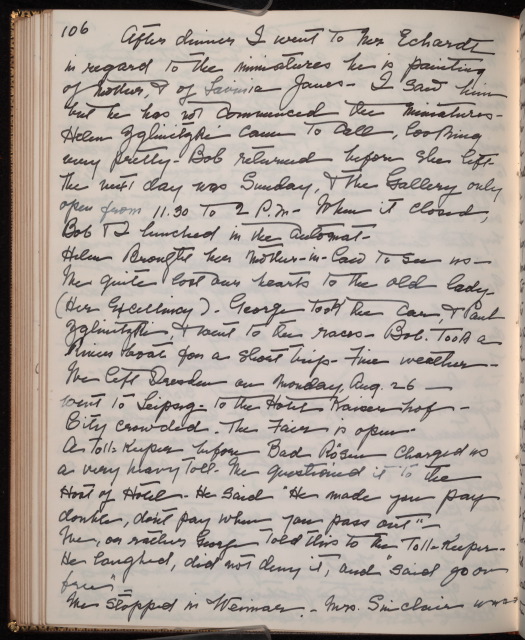 106
After dinner I went to Mrs. Echardt
in regard to the miniatures he is painting
of Mother, & of Lavinia Janes - I saw him
but he has not commenced the miniatures -
Helen Zglinitzki came to call, looking
very pretty - Bob returned before she left -
The next day was Sunday, & the Gallery only
open from 11.30 to 2 P.m - When it closed,
Bob & I lunched in the Automat -
Helen Brought her Mother-in-law to see us -
We quite lost our hearts to the old lady -
(Her Excellency). George took the Car, & Paul
Zglinitzki, & went to the races - Bob. took a
River boat for a short trip - Fine weather -
We left Dresden on Monday Aug. 26 -
went to Leipsig - to the Hotel Kaiser-hof -
City crowded - The Fair is open -
A Toll-Keeper before Bad Kösen charged us
a very heavy toll - We questioned it to the
Host of Hotel - He said "He made you pay
double, don't pay when you pass out" -
We, or rather George told this to the Toll-Keeper -
He laughed, did not deny it, and "said go on
free" -
We stopped in Weimar - Mrs. Sinclair was